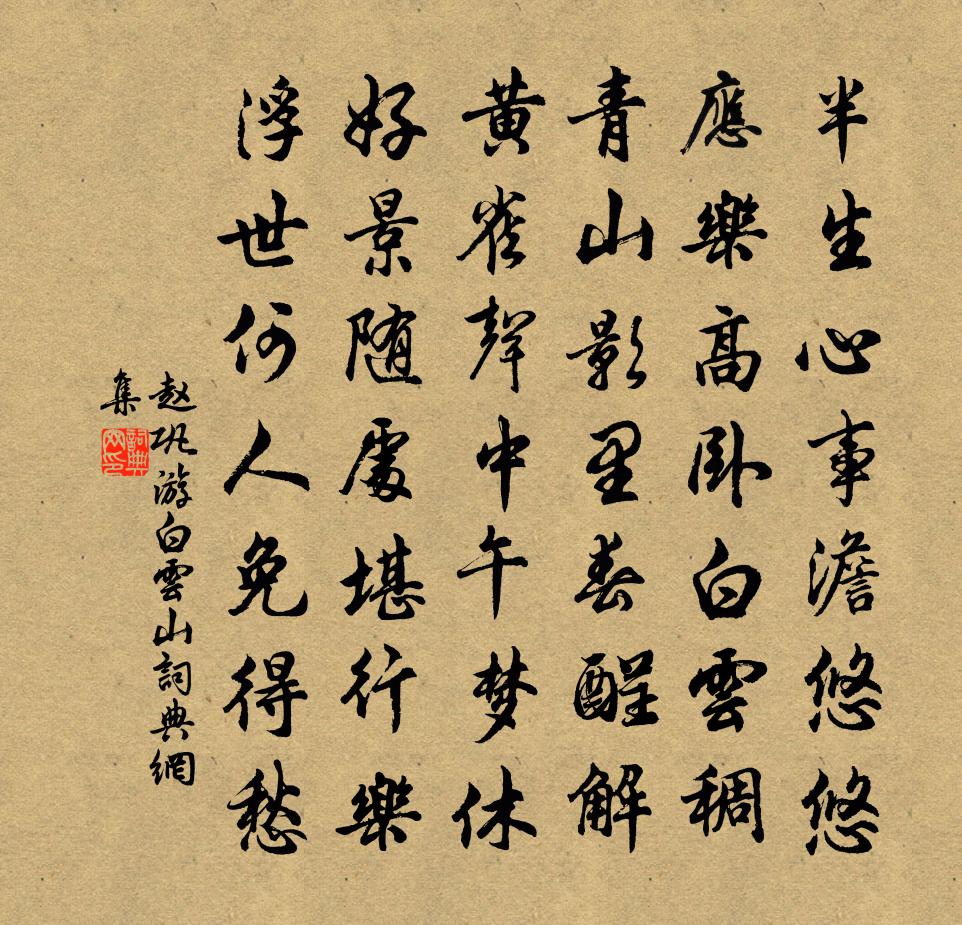 半生心事澹悠悠
應樂高卧白雲稠
青山影里春酲解
黄雀聲中午梦休
好景随處堪行樂
浮世何人免得愁
赵巩游白雲山詞典網
集
詞典
网印